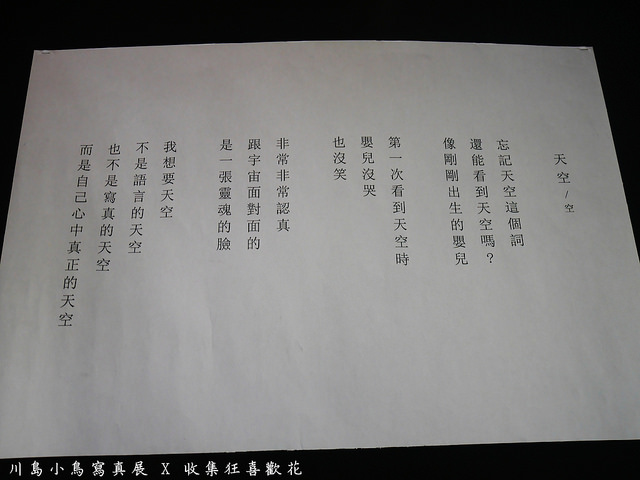 天空/空
忘記天空這個詞
還能看到天空嗎？
像剛剛出生的嬰兒
第一次看到天空時
嬰兒沒哭
也沒笑
非常非常認真
跟宇宙面對面的
是一張靈魂的臉
我想要天空
不是語言的天空
也不是寫真的天空
而是自己心中真正的天空
川島小鳥寫真展 X 收集狂喜歡花